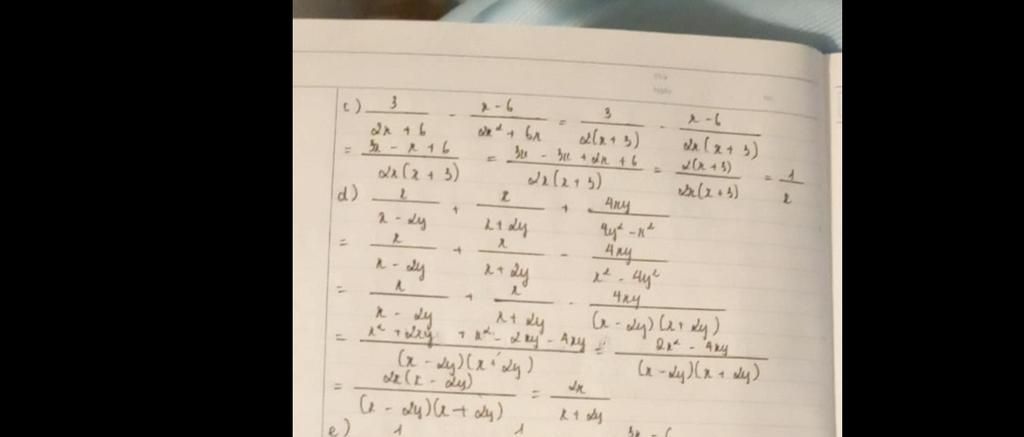 c) 3/(2x + 6) - (x - 6)/(2x² + 6x) = 3/(2(x + 3)) - (x - 6)/(2x(x + 3))
= (3x - x + 6)/(2x(x + 3)) = (3x - 3x + 2x + 6)/(2x(x + 3)) = (2(x + 3))/(2x(x + 3)) = 1/x
d) x/(x - 2y) + x/(x + 2y) + 4xy/(4y² - x²)
= x/(x - 2y) + x/(x + 2y) - 4xy/(x² - 4y²)
= x/(x - 2y) + x/(x + 2y) - 4xy/((x - 2y)(x + 2y))
= (x² + 2xy + x² - 2xy - 4xy)/((x - 2y)(x + 2y)) = (2x² - 4xy)/((x - 2y)(x + 2y))
= (2x(x - 2y))/((x - 2y)(x + 2y)) = 2x/(x + 2y)
e) 1 1